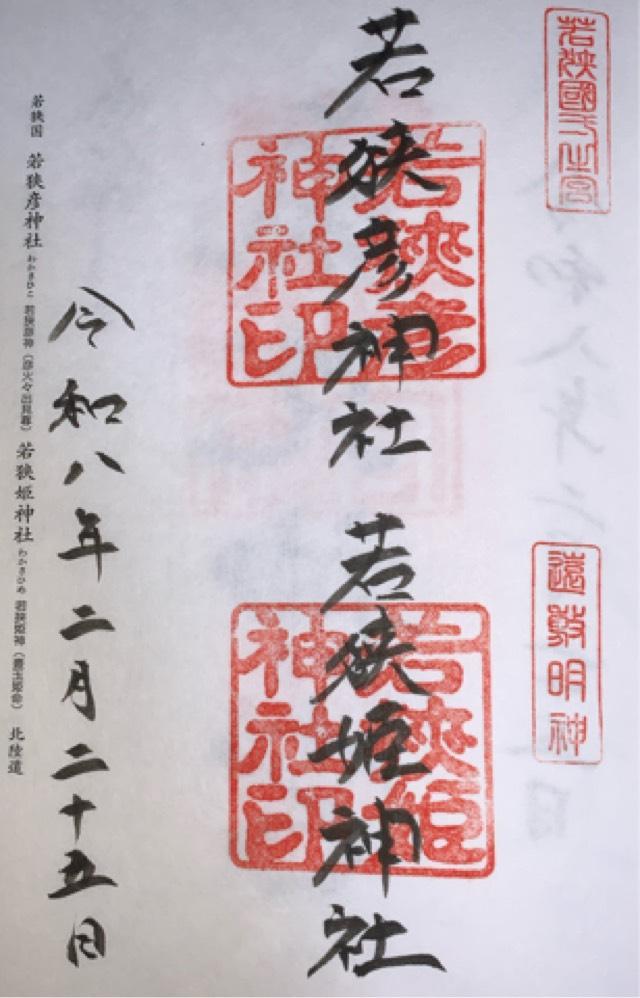 若狹國弌之宮
遠敷明神
若狭彦神社
若狹彦
神社印
若狭姫神社
若狹姫
神社印
令和八年二月二十五日
若狭国 若狭彦神社 わかさひこ 若狭彦神（彦火々出見尊） 若狭姫神社 わかさひめ 若狭姫神（豊玉姫命） 北陸道